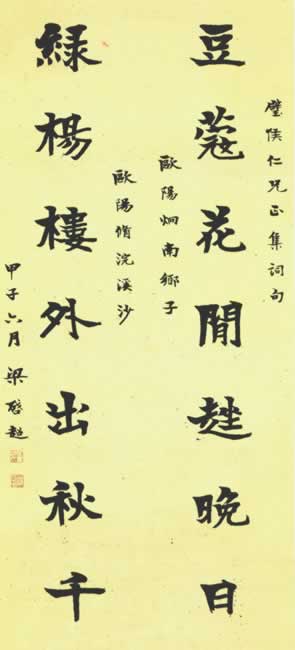 璧侯仁兄正集詞句
豆蔻花閒趖晚日
歐陽炯南鄉子
歐陽脩浣溪沙
綠楊樓外出秋千
甲子六月梁啓超